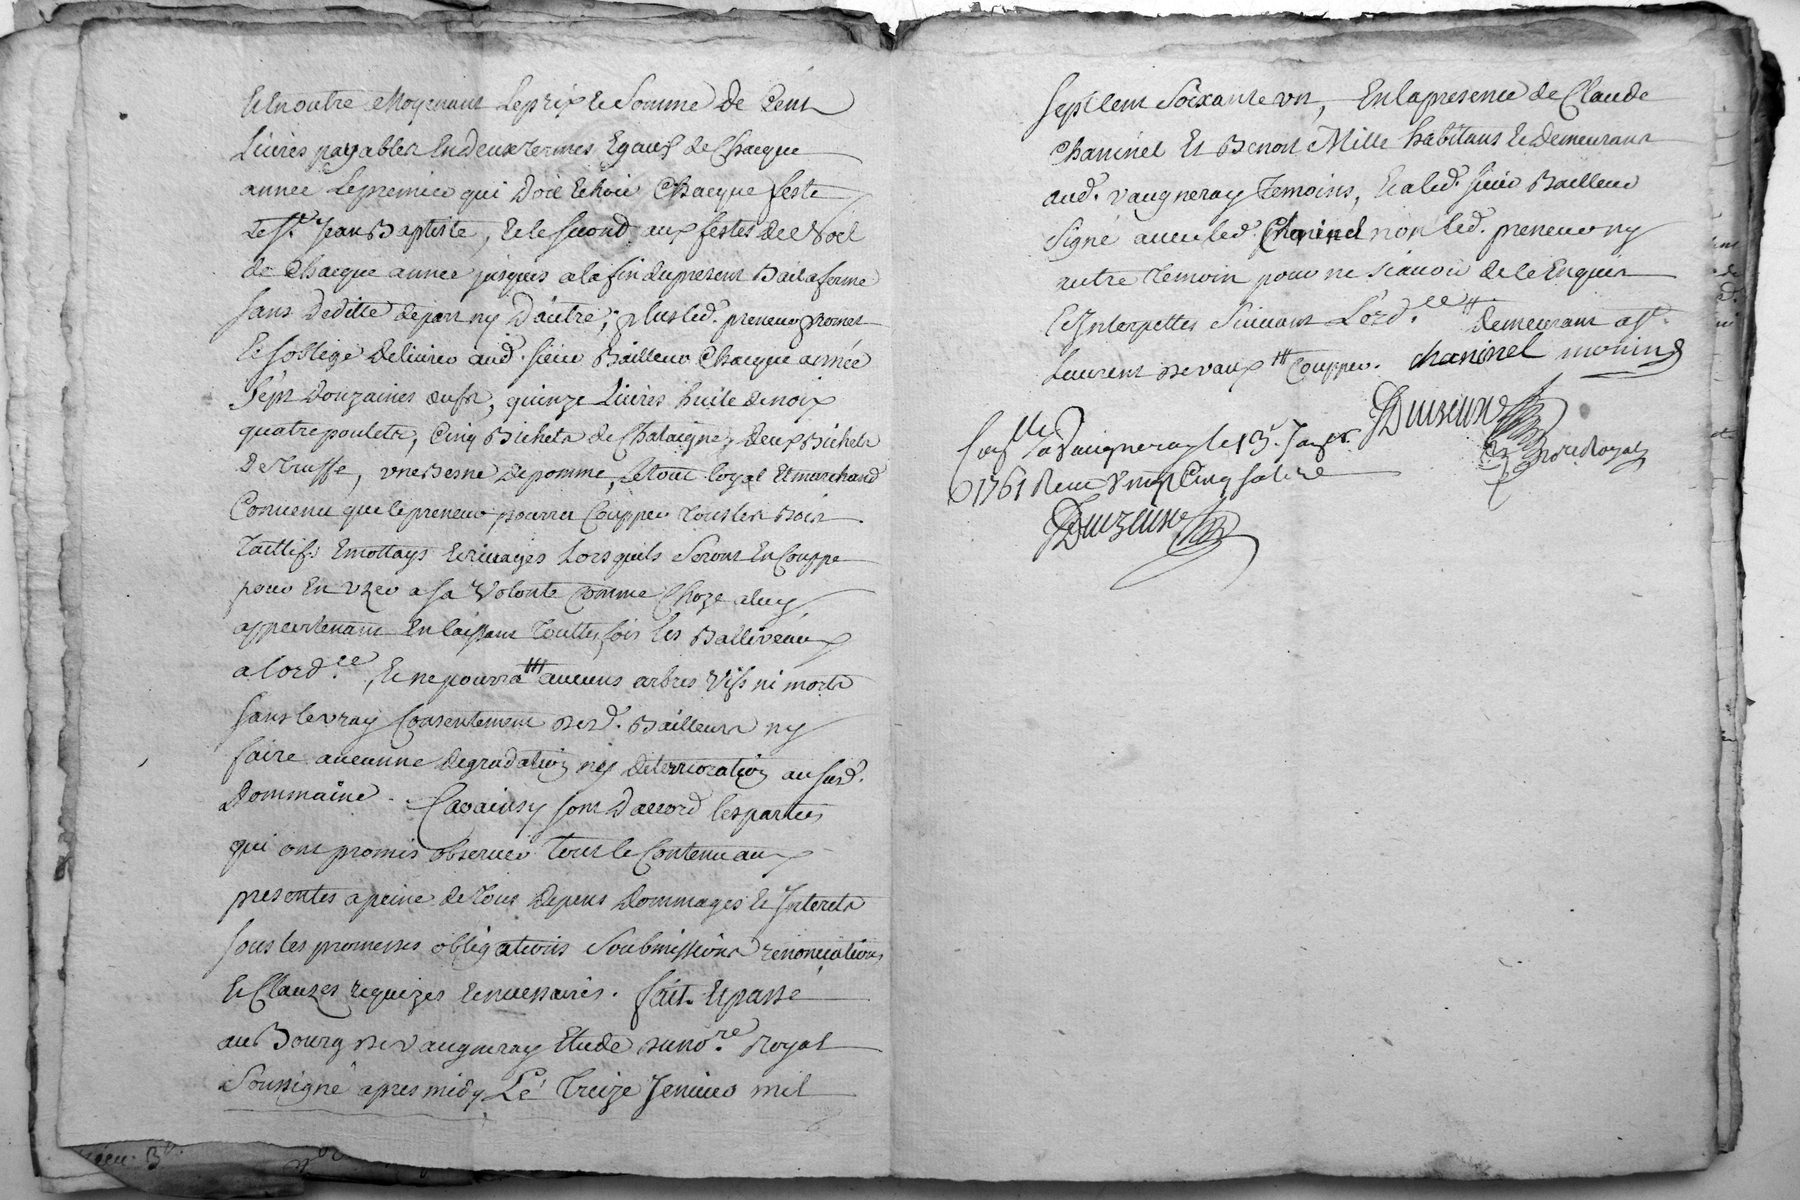 Et en outre Moyenant le prix et Somme de Cent
Livres payables En deux termes Egaux de Chacque
année le premier qui doit Echoir Chacque feste
de St. Jean Baptiste, et le second aux festes de Noël
de Chacque année jusques a la fin du present Bail a ferme
sans deditte de part ny d'autre; plus led. preneur promet
et s'oblige de livrer aud. sieur Bailleur Chacque année
Sept douzaines œufs, quinze Livres huile de noix
quatre poulets, Cinq Bichets de Chataignes, deux Bichets
de truffe, une Besne de pomme, le tout loyal et marchand
Convenu que le preneur pourra Coupper tous les Bois
taillifs Emottays et rivages Lorsquils Seront En Couppe
pour En uzer a sa Volonté Comme Choze a luy
appartenant En laissant touttesfois les Balliveaux
a l'ord.ce, Et ne pourra ⧻ aucuns arbres Vifs ni morts
sans le vray Consentement desd. Bailleurs ny
faire aucunne degradation ny deterrioration au susd.
Dommaine. Car ainsy sont d'accord les parties
qui ont promis observer tout le Contenu aux
presentes a peine de tous depens dommages et Interets
sous les promesses obligations Soubmissions renonciations
et Clauzes requizes et necessaires. fait Et passé
au Bourg de vaugneray Etude du no.re Royal
Soussigné apres midy Le treize Janvier mil
sept Cent Soixante un, En la presence de Claude
Chaninel Et Benoit Mille habitans et demeurans
aud. vaugneray temoins, Et a led. sieur Bailleur
Signé avec led. Chaninel non led. preneur ny
autre temoin pour ne scavoir de ce Enquis
et Interpellés Suivant L'ord.ce ⧺ demeurant a St.
Laurent de vaux ⧻ Coupper. chaninel monin
Duzeun
No.re Royal
Con.llé a Vaugneray le 13e. Janv.r
1761 Receu Vingt Cinq sols
Duzeun